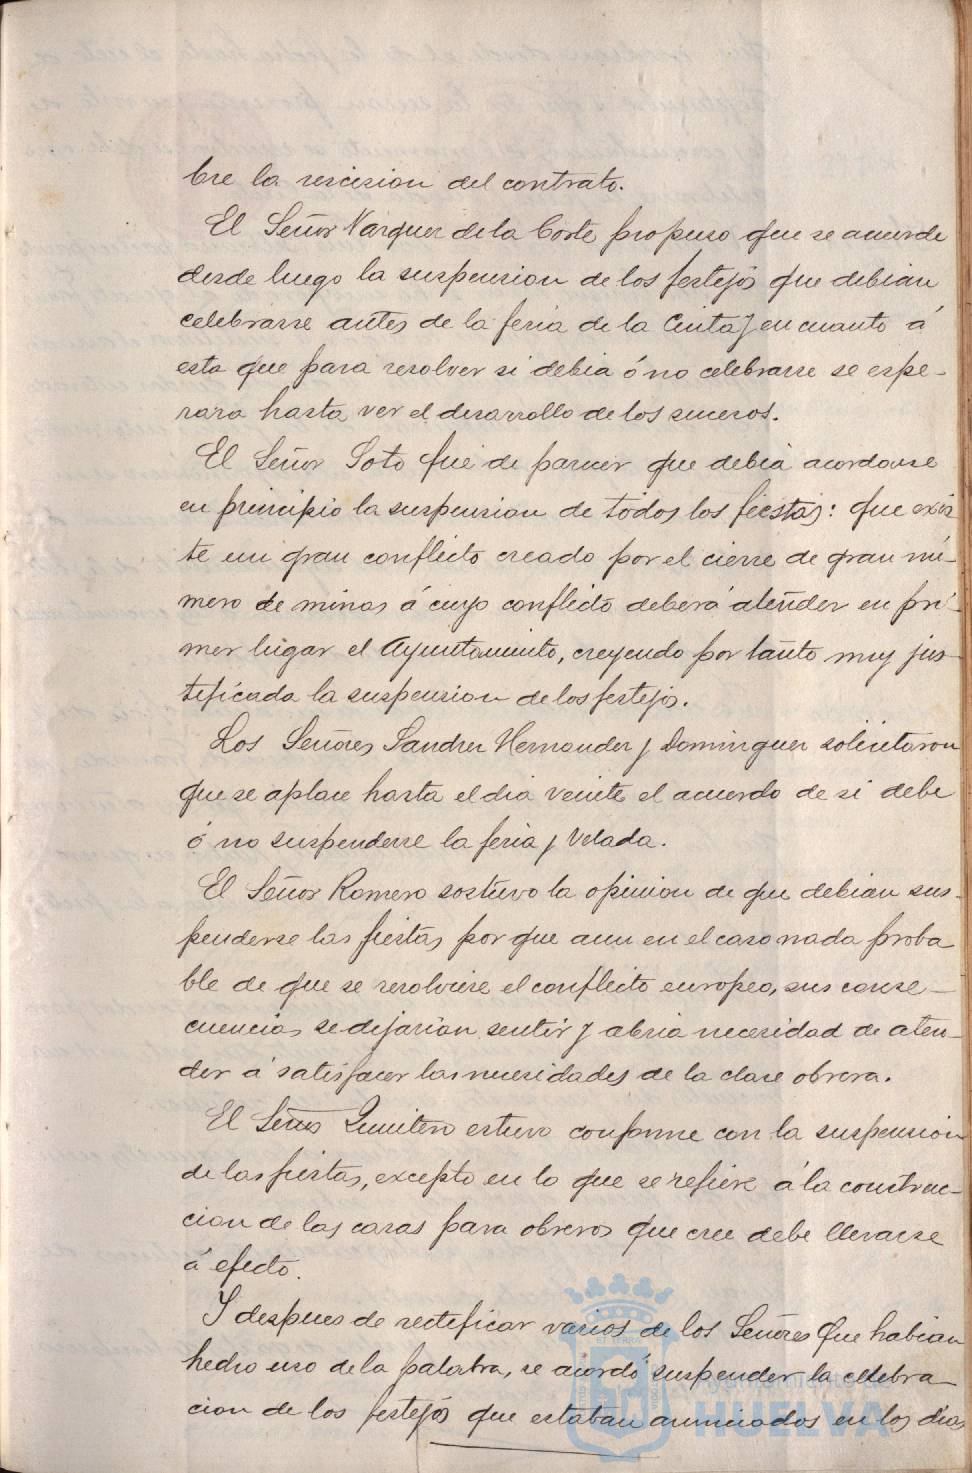 bre la rescision del contrato.
El Señor Vazquez de la Corte propuso que se acuerde
desde luego la suspension de los festejos que debian
celebrarse antes de la feria de la Cinta y en cuanto á
esta que para resolver si debia ó no celebrarse se espe-
rara hasta ver el desarrollo de los sucesos.
El Señor Soto fué de parecer que debia acordarse
en principio la suspension de todos los fiestas: que exis
te un gran conflicto creado por el cierre de gran nú-
mero de minas á cuyo conflicto deberá atender en pri-
mer lugar el Ayuntamiento, creyendo por tanto muy jus-
tificada la suspension de los festejos.
Los Señores Sanchez Hernandez y Dominguez solicitaron
que se aplace hasta el dia veinte el acuerdo de si debe
ó no suspenderse la feria y Velada.
El Señor Romero sostuvo la opinion de que debian sus-
penderse las fiestas por que aun en el caso nada proba
ble de que se resolviese el conflicto europeo, sus conse-
cuencias se dejarian sentir y abria necesidad de aten-
der á satisfacer las necesidades de la clase obrera.
El Señor Quintero estuvo conforme con la suspension
de las fiestas, excepto en lo que se refiere á la construc-
cion de las casas para obreros que cree debe llevarse
á efecto.
Y despues de rectificar varios de los Señores que habian
hecho uso de la palabra, se acordó suspender la celebra
cion de los festejos que estaban anunciados en los dias
Ayuntamiento de
HUELVA